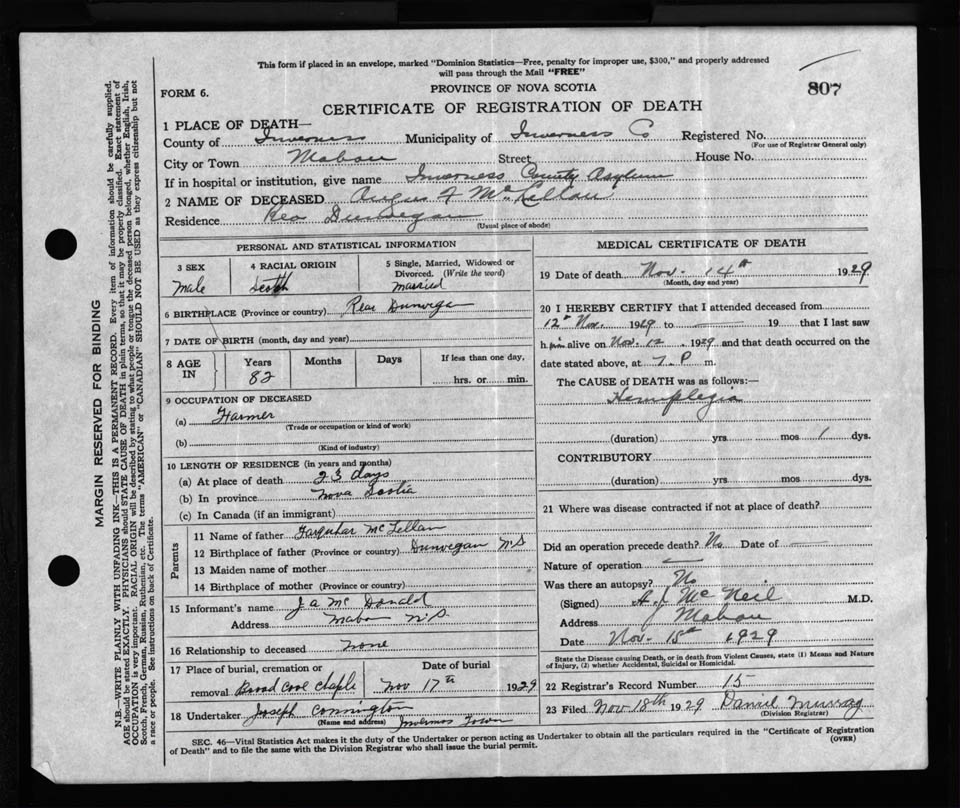 This form if placed in an envelope, marked "Dominion Statistics—Free, penalty for improper use, $300," and properly addressed
will pass through the Mail "FREE"
807
FORM 6.
PROVINCE OF NOVA SCOTIA
CERTIFICATE OF REGISTRATION OF DEATH
1 PLACE OF DEATH—
County of Inverness Municipality of Inverness Co Registered No.
(For use of Registrar General only)
City or Town Mabou Street House No.
If in hospital or institution, give name Inverness County Asylum
2 NAME OF DECEASED Angus F McLellan
Residence Rea Dunvegan
(Usual place of abode)
PERSONAL AND STATISTICAL INFORMATION
3 SEX 4 RACIAL ORIGIN 5 Single, Married, Widowed or
Divorced. (Write the word)
Male Scotch married
6 BIRTHPLACE (Province or country) Rear Dunvega
7 DATE OF BIRTH (month, day and year)
8 AGE IN Years Months Days If less than one day,
82 hrs. or min.
9 OCCUPATION OF DECEASED
(a) Farmer
(Trade or occupation or kind of work)
(b)
(Kind of industry)
10 LENGTH OF RESIDENCE (in years and months)
(a) At place of death 23 days
(b) In province Nova Scotia
(c) In Canada (if an immigrant)
Parents
11 Name of father Farquhar McLellan
12 Birthplace of father (Province or country) Dunvegan N.S
13 Maiden name of mother
14 Birthplace of mother (Province or country)
15 Informant's name J a McDonald
Address Mabou N.S.
16 Relationship to deceased none
17 Place of burial, cremation or Date of burial
removal Broad Cove Chaple Nov 17th 1929
18 Undertaker Joseph Connington
(Name and address) Inverness Town
MEDICAL CERTIFICATE OF DEATH
19 Date of death Nov. 14th 1929
(Month, day and year)
20 I HEREBY CERTIFY that I attended deceased from
12th Nov. 1929 to — 19 that I last saw
him alive on Nov. 12 1929 and that death occurred on the
date stated above, at 7. P m.
The CAUSE OF DEATH was as follows:—
Hemiplegia
(duration) yrs mos 1 dys.
CONTRIBUTORY
(duration) yrs. mos dys.
21 Where was disease contracted if not at place of death?
Did an operation precede death? No Date of —
Nature of operation —
Was there an autopsy? No
(Signed) A. J. McNeil M.D.
Address Mabou
Date Nov. 15th 1929
State the Disease causing Death, or in death from Violent Causes, state (1) Means and Nature
of Injury, (2) whether Accidental, Suicidal or Homicidal.
22 Registrar's Record Number 15
23 Filed Nov 18th 1929 Daniel Murray
(Division Registrar)
SEC. 46—Vital Statistics Act makes it the duty of the Undertaker or person acting as Undertaker to obtain all the particulars required in the "Certificate of Registration
of Death" and to file the same with the Division Registrar who shall issue the burial permit.
(OVER)
MARGIN RESERVED FOR BINDING
N.B.—WRITE PLAINLY WITH UNFADING INK—THIS IS A PERMANENT RECORD. Every item of information should be carefully supplied.
AGE should be stated EXACTLY. PHYSICIANS should STATE CAUSE OF DEATH in plain terms, so that it may be properly classified. Exact statement of
OCCUPATION is very important. RACIAL ORIGIN will be described by stating to what people or tongue the deceased person belonged, whether English, Irish,
Scotch, French, German, Russian, Ruthenian, etc. The terms "AMERICAN" or "CANADIAN" SHOULD NOT BE USED as they express citizenship but not
a race or people. See instructions on back of Certificate.